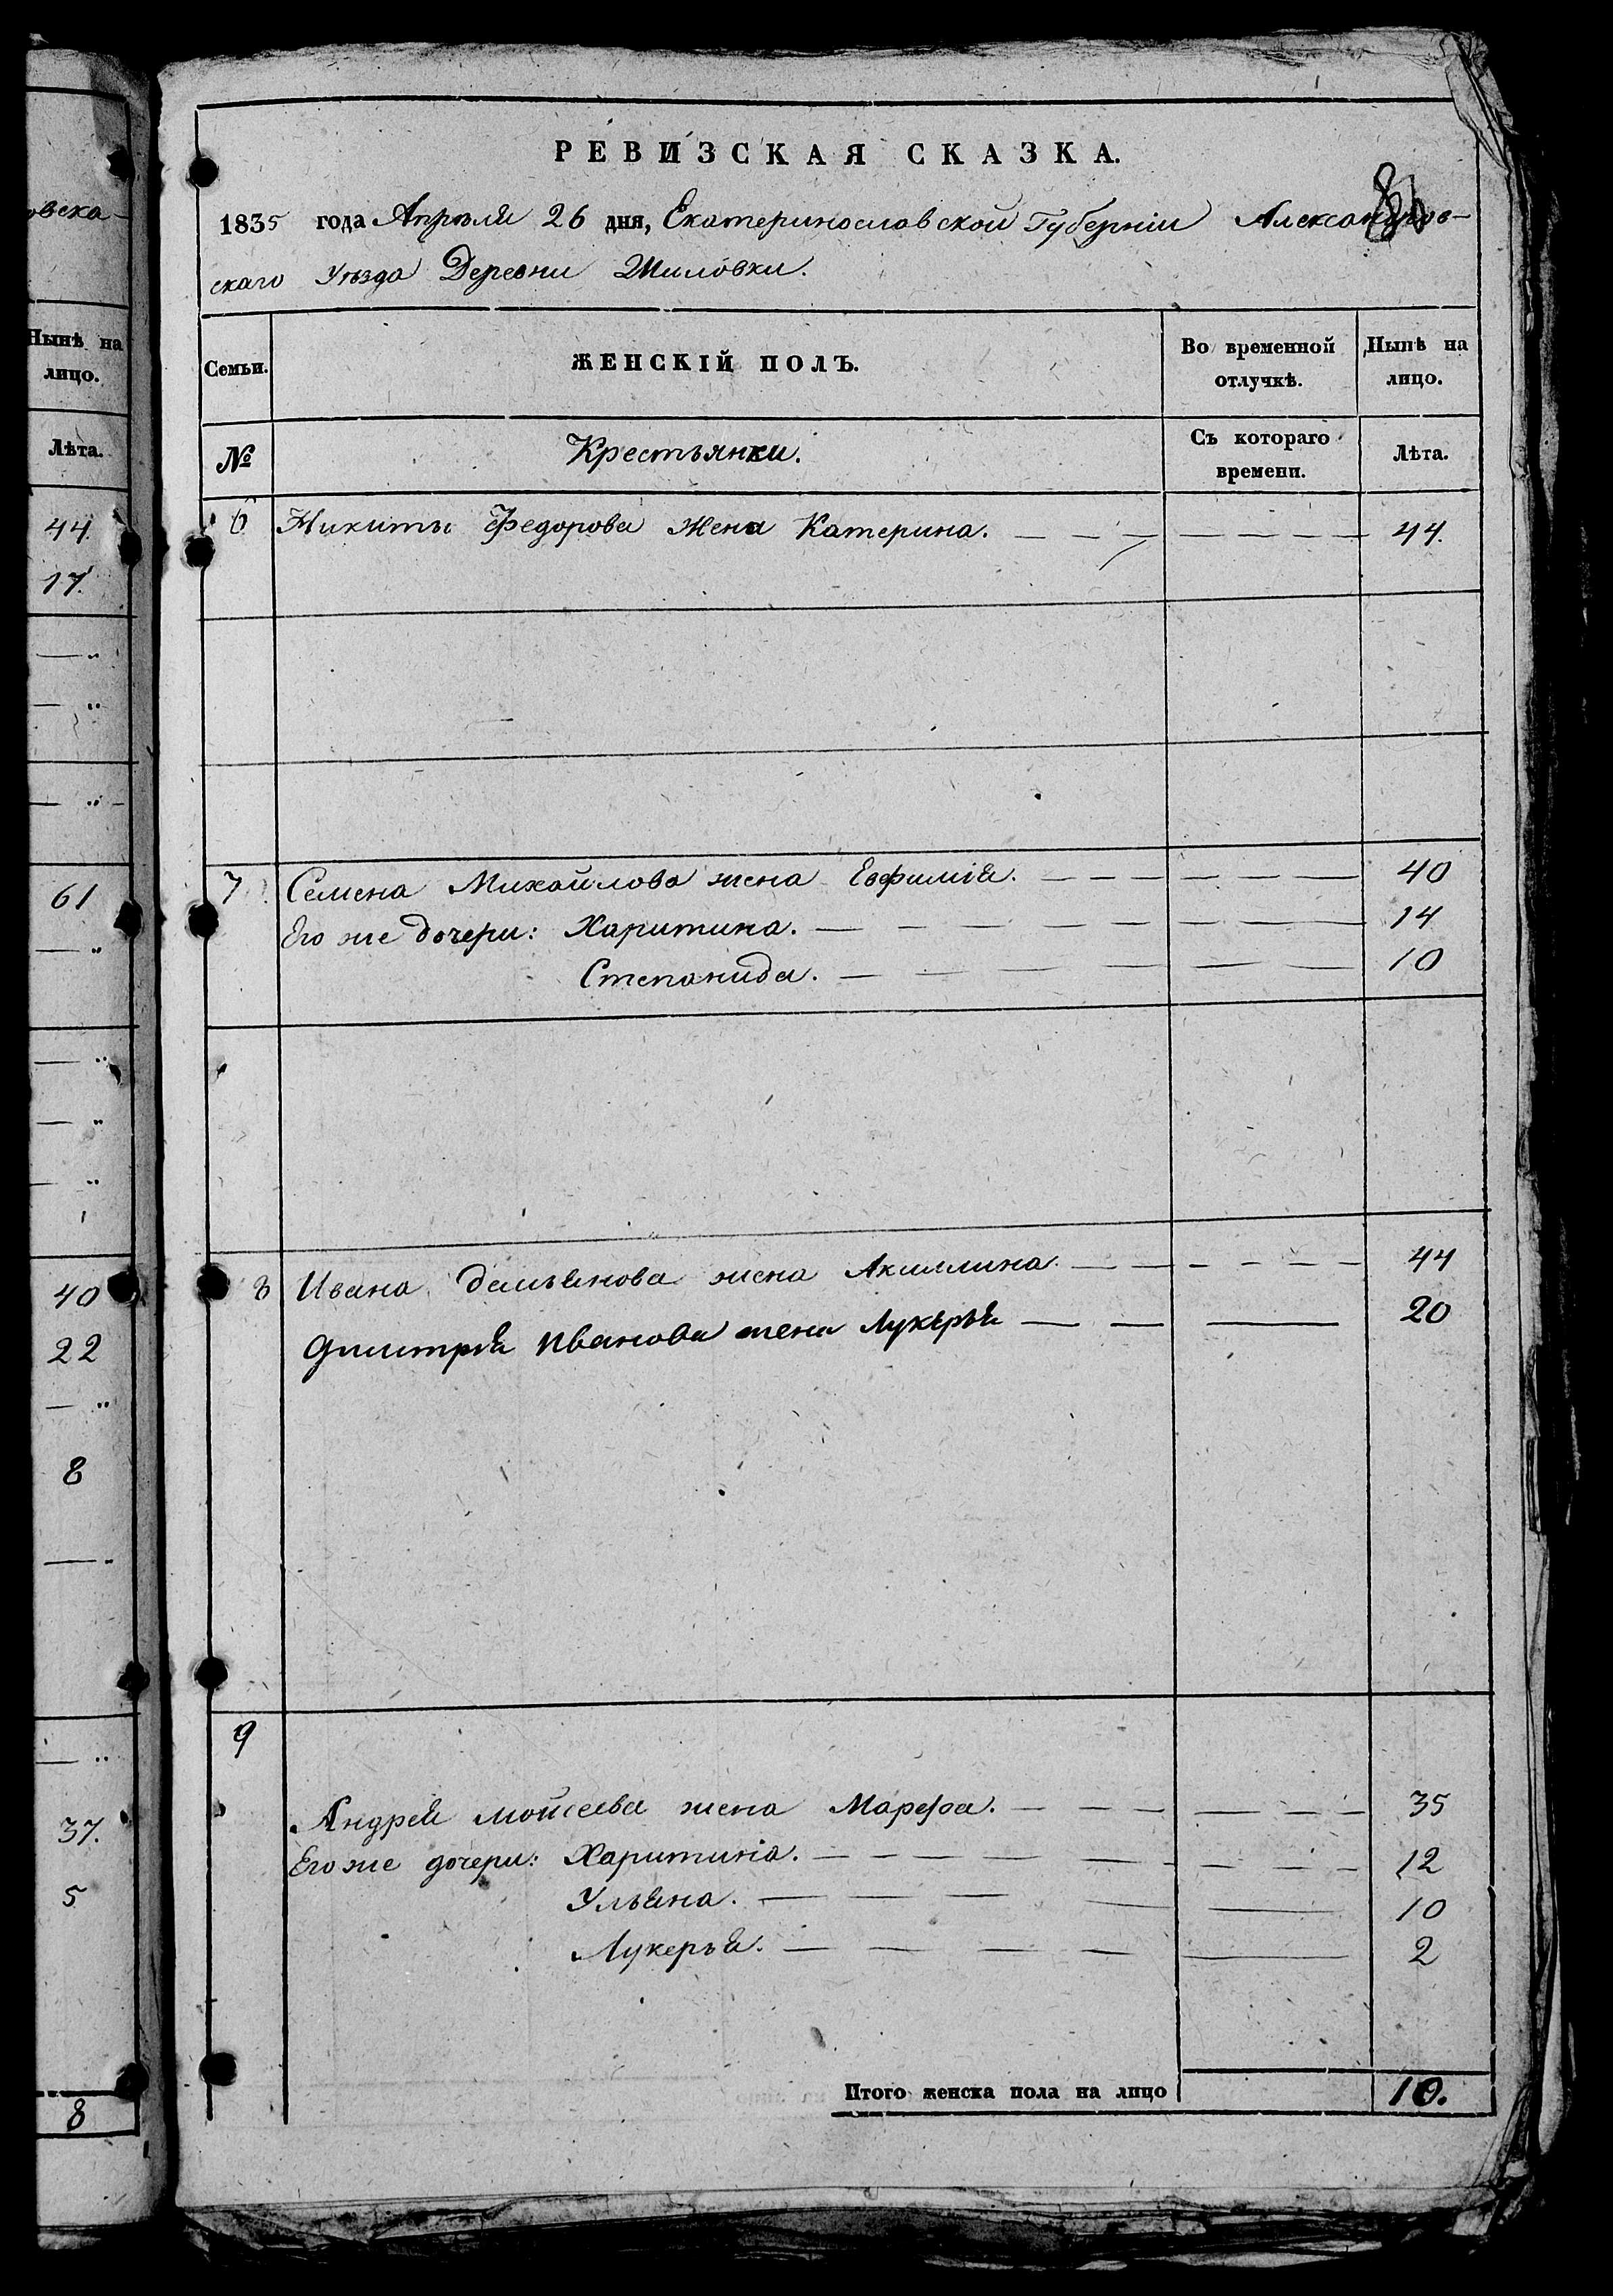 овска-
Нынѣ на
лицо.
Лѣта.
44.
17.
61
40
22
8
37.
5
8
РЕВИЗСКАЯ СКАЗКА.
1835 года Апрѣля 26 дня, Екатеринославской Губерніи Александров-
скаго Уѣзда Деревни Шиловки.
Семьи. ЖЕНСКІЙ ПОЛЪ. Во временной отлучкѣ. Нынѣ на лицо.
№ Крестьянки. Съ котораго времени. Лѣта.
6 Никиты Федорова жена Катерина. 44.
7 Семена Михайлова жена Евфимія. 40
Его же дочери: Харитина. 14
Степанида. 10
8 Ивана Демьянова жена Акилина 44
Дмитрія Иванова жена Лукерья 20
9
Андрея Мойсеева жена Марфа. 35
Его же дочери: Харитина. 12
Ульяна. 10
Лукерья. 2
Итого женска пола на лицо 10.